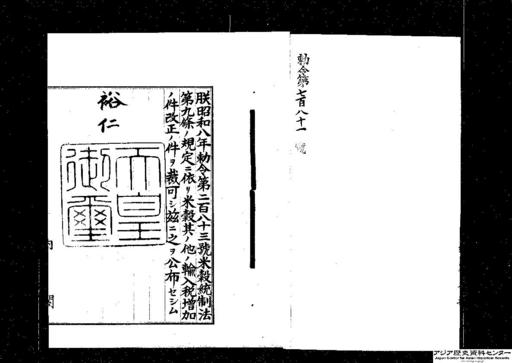 勅令第七百八十一號
朕昭和八年勅令第二百八十三號米穀統制法
第九條ノ規定ニ依リ米穀其ノ他ノ輸入稅增加
ノ件改正ノ件ヲ裁可シ玆ニ之ヲ公布セシム
裕仁
天皇
御璽
内
閣
アジア歴史資料センター
Japan Center for Asian Historical Records